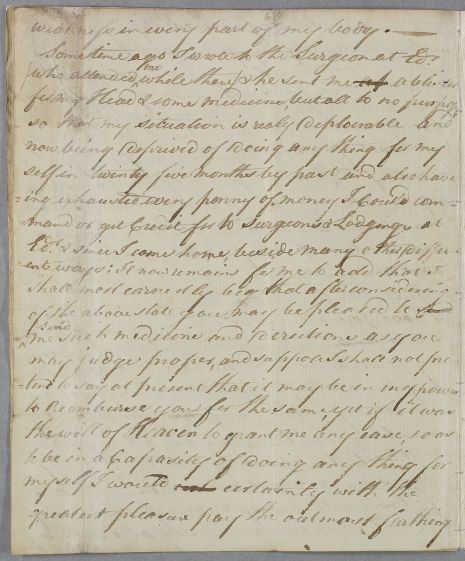 weakness in every part of my body. —
Sometime ago I wrote to the Surgeon at Edr.
who attended me while there & he sent me a blister
for my Head & some medicine but all to no purpose
so that my situation is realy deplorable and
now being deprived of doing any thing for my
self in twinty five months by past and also have
ing exhausted every penny of money I Could com
mand or get Credit for to Surgeons & Lodgings at
Edr. & since I came home, beside many other differ
ent ways: It now remains for me to add that I
shall most earnestly beg that after considering
of the above state you may be pleased to
send
me such medicine and directions as you
may judge proper, and suppose I shall not pre
tend to say at present that it may be in my power
to Reemburse you for the same, yet if it was
the will of Heaven to grant me any ease, so as
to be in a Capasity of doing any thing for
myself I would certainly with the
greatest pleasure pay the outmost farthing